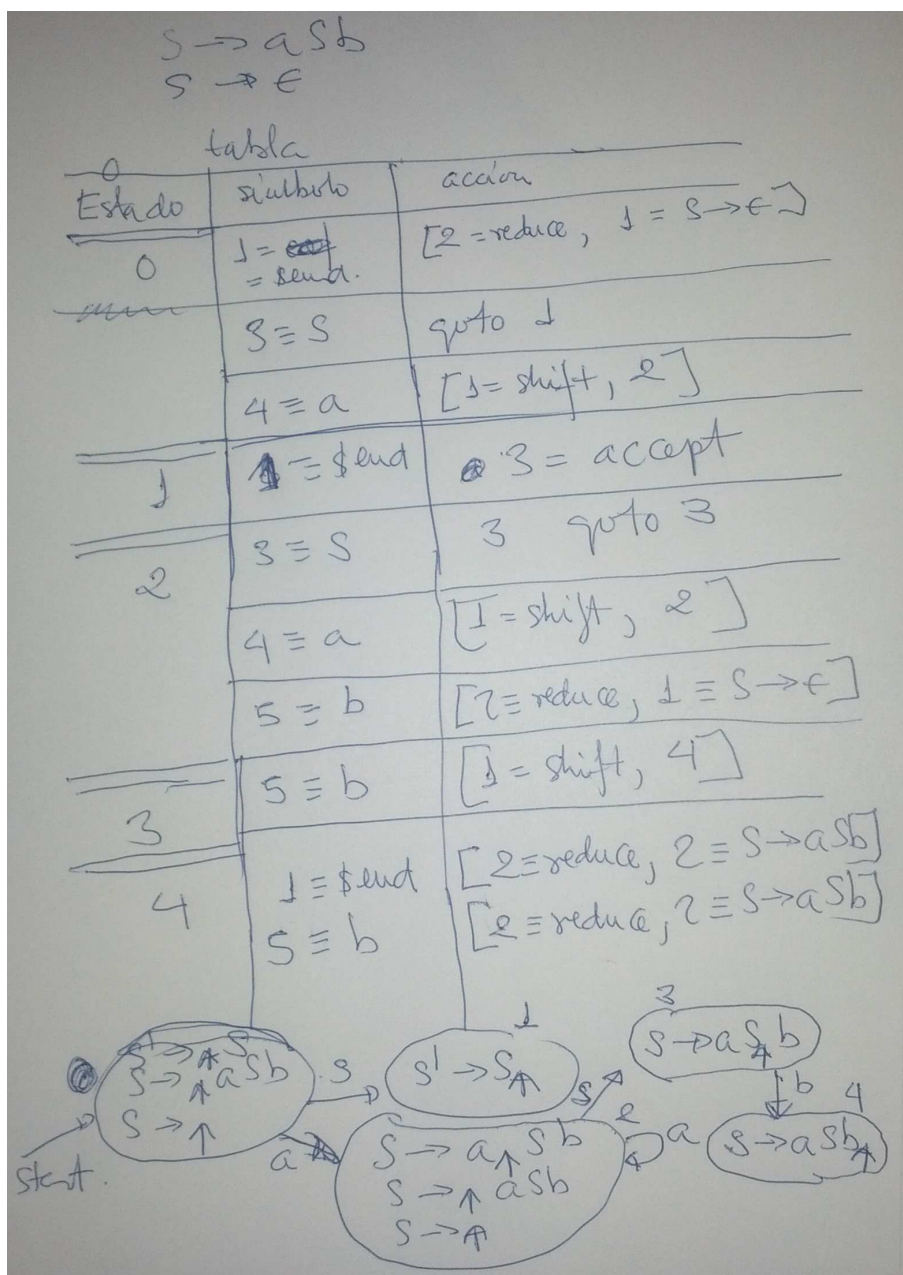 S → aSb
S → ϵ
tabla
0
Estado símbolo acción
0 1 = = $end. [2 = reduce, 1 = S → ϵ]
3 ≡ S goto 1
4 ≡ a [1 = shift, 2]
1 1 ≡ $end 3 = accept
2 3 ≡ S 3 goto 3
4 ≡ a [1 = shift, 2]
5 ≡ b [2 ≡ reduce, 1 ≡ S → ϵ]
5 ≡ b [1 = shift, 4]
3
4 1 ≡ $end [2 ≡ reduce, 2 ≡ S → aSb]
5 ≡ b [2 ≡ reduce, 2 ≡ S → aSb]
S' → ↑ S
S → ↑ aSb
S → ↑
start.
S
a
1
S' → S↑
2
S → a↑Sb
S → ↑aSb
S → ↑
S
a
3
S → aS↑b
b
4
S → aSb↑